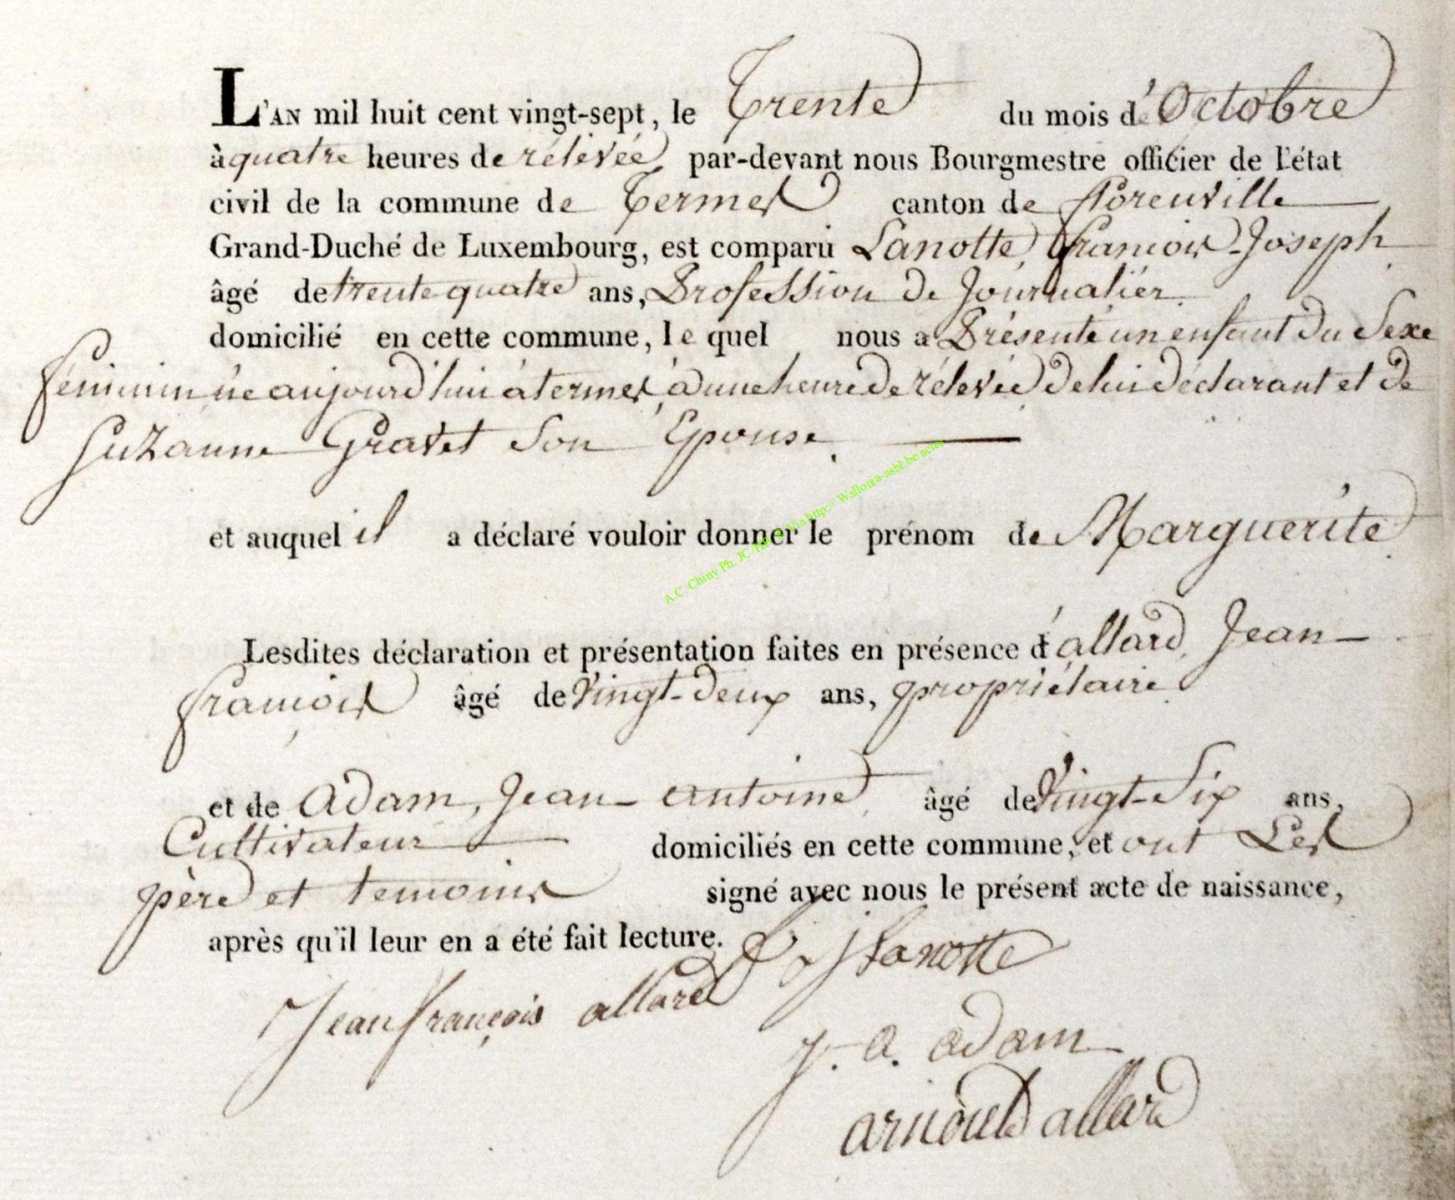 L'AN mil huit cent vingt-sept, le Trente du mois d'Octobre
à quatre heures de rélevée, par-devant nous Bourgmestre officier de l'état
civil de la commune de Termes canton de florenville
Grand-Duché de Luxembourg, est comparu Lanotte, françois-Joseph
âgé de trente quatre ans, Profession de Journalier
domicilié en cette commune, le quel nous a Présenté un enfant du Sexe
féminin, né aujourd'hui à termes, à une heure de rélevée de lui déclarant et de
Suzanne Gravet son Epouse.
et auquel il a déclaré vouloir donner le prénom de Marguerite
Lesdites déclaration et présentation faites en présence d'allard, Jean-
françois âgé de vingt-deux ans, propriétaire
et de adam, Jean-antoine, âgé de vingt-six ans,
Cultivateur domiciliés en cette commune, et ont Les
père et temoins signé avec nous le présent acte de naissance,
après qu'il leur en a été fait lecture.
f j Lanotte
Jean françois allard
j. a. adam
arnould allard
A.C. Chiny Ph. http:// Wallonia-asbl.be